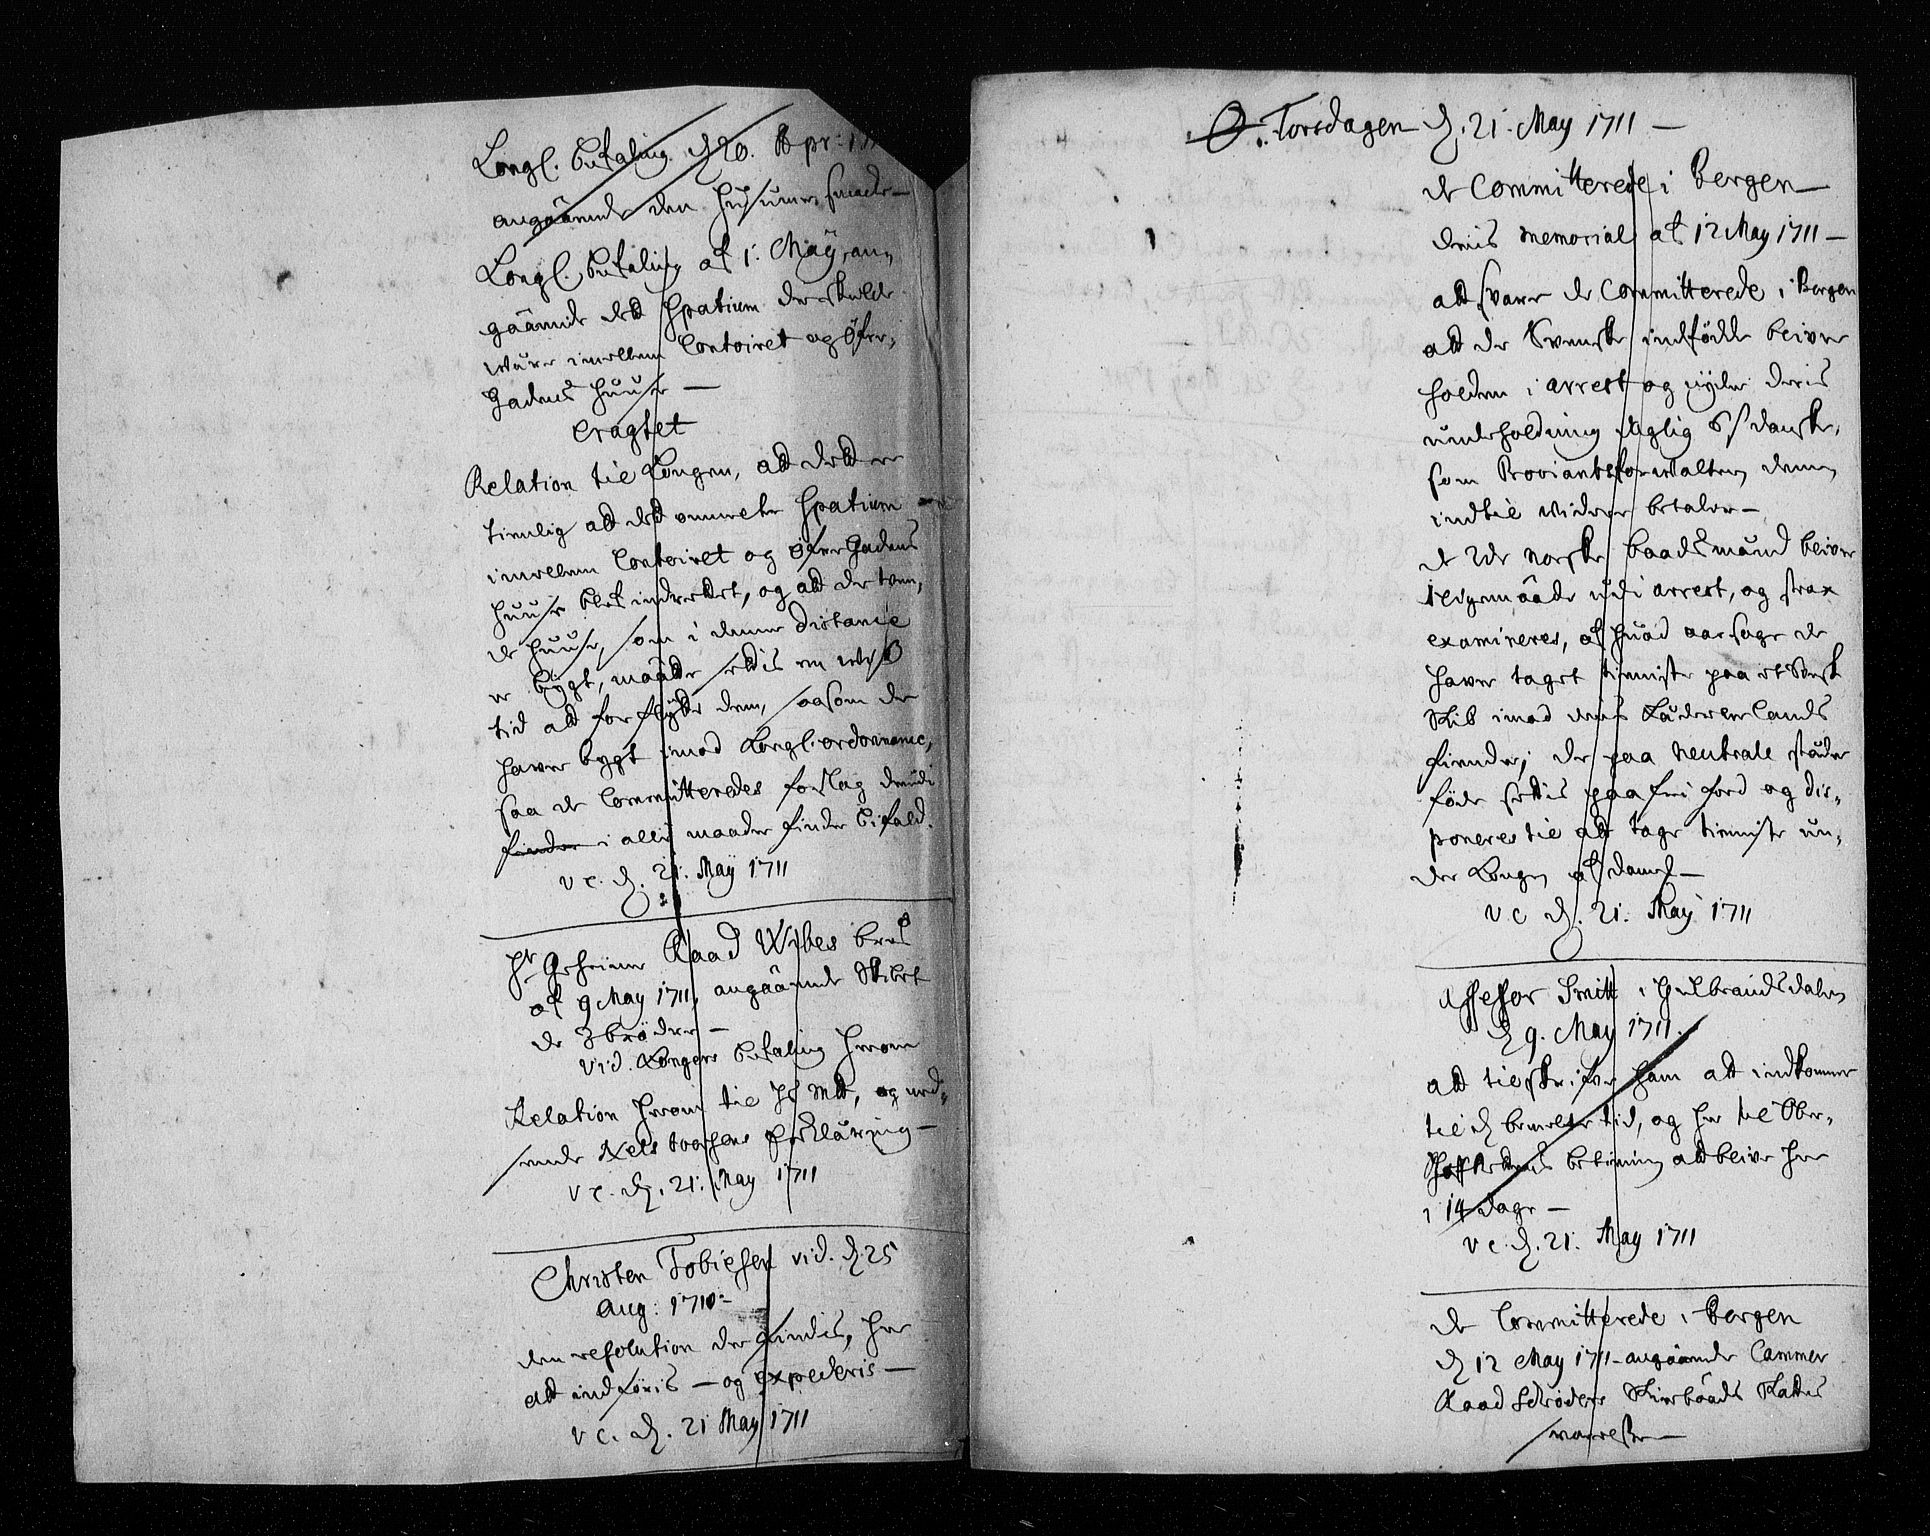 Kongl. befaling d 20. Apr: 17
angaaende den Husumer
Kongl. befaling af 1. May, an,
gaaende det Spatium der skulde
være imellem Contoiret og Øfver,
Gadens Huuse —
Eragtet
Relation til Kongen, at det er
tienlig at det ommelte Spatium
imellem Contoiret og Øfver Gadens
Huuse blef indrettet, og at de tven,
de Huuse, som i denne distance
er bygt, maatte settis en wiß
tid at forflytte dem, saasom de
hafver bygt imod Kongl. ordonnance,
saa de Committeredes forslag derudi
finder i alle maader finder bifald.
V C. d. 21. May 1711
Hr Geheime Raad Wibes bref
af 9 May 1711, angaaende Skibet
de 3 brødre —
vid. Kongens befaling herom
Relation herom til Hs Mtt, og med,
sende Nels erklæring —
V C. d. 21. May 1711
Christen Tobiesen vid. d. 25
Aug: 1710
den resolution der findis, her
at indføris — og expederis —
V C. d. 21 May 1711
Torsdagen d. 21. May 1711 —
de Committerede i Bergen
deris memorial af 12 May 1711 —
at svare de Committerede i Bergen
at de Svenske indfødde blive
holden i arrest og nyder deris
underholdning daglig 6 s danske,
som Proviantsforvalteren dem,
indtil videre betaler —
de 2de norske baadsmænd blive
ligemaade udi arrest, og strax
examineres, af huad aarsage de
hafver taget tienniste paa et Svensk
Skib imod deris Fæderne lands
fiender; de paa neutrale stæder
føde settis paa fri fod og dis,
poneres til at tage tienniste un,
der Kongen af Danmk —
V C d. 21. May 1711
Assessor Smitt i Gulbrandsdalen
d 9. May 1711.
at tilskrifve ham at indkomme
til d bemelte tid, og her ved Ober,
Hoff Rettens betiening at blive her
i 14 dage —
V C. d. 21. May 1711
de Committerede i Bergen
d 12 May 1711 — angaaende Cammer
Raad Schrøders Skierbaads Skattes